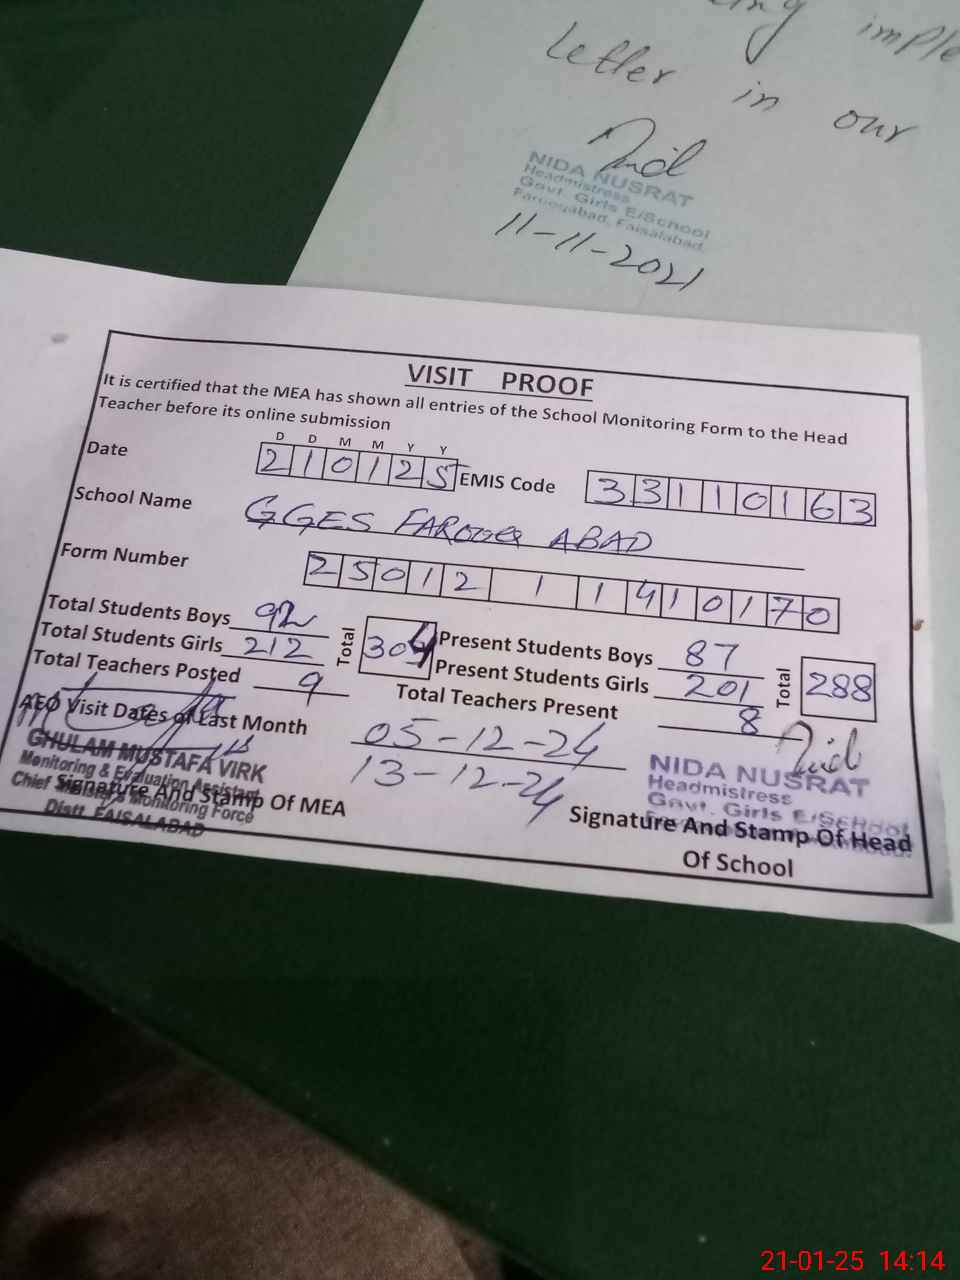 imple
Letter in our
NIDA NUSRAT
Headmistress
Govt. Girls E/School
Farooqabad, Faisalabad
11-11-2021
VISIT PROOF
It is certified that the MEA has shown all entries of the School Monitoring Form to the Head
Teacher before its online submission
D D M M Y Y
Date 210125 EMIS Code 33110163
School Name GGES FAROOQ ABAD
Form Number 25012 1 1410170
Total Students Boys 92 Present Students Boys 87
Total Students Girls 212 Total 304 Present Students Girls 201 Total 288
Total Teachers Posted 9 Total Teachers Present 8
AEO Visit Dates of Last Month 05-12-24
13-12-24
GHULAM MUSTAFA VIRK
Monitoring & Evaluation Assistant
Chief Minister's Monitoring Force
Distt. FAISALABAD
Signature And Stamp Of MEA
NIDA NUSRAT
Headmistress
Govt. Girls E/School
Signature And Stamp Of Head
Of School
21-01-25 14:14